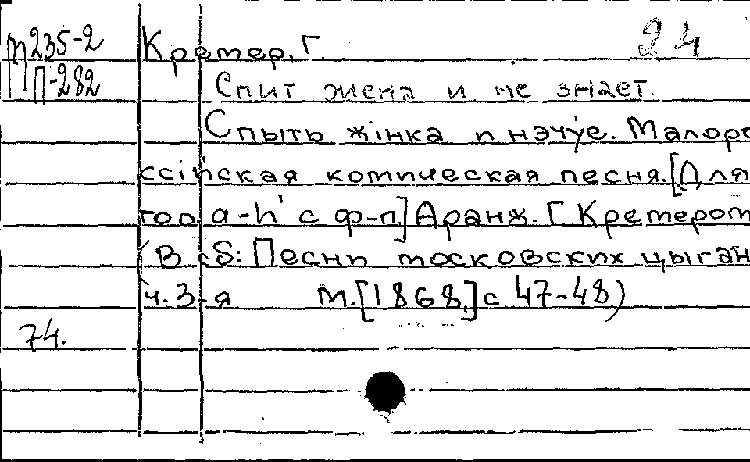 М 235-2
П-282
24
Кремер, Г.
Спит жена и не знает.
Спыть жiнка и нэчуе. Малоро
ссiйская комическая песня. [Для
гол. a-h' с ф-п.] Аранж. Г. Кремером
(В сб: Песни московских цыган
ч. 3-я М. [1868,] с 47-48)
74.